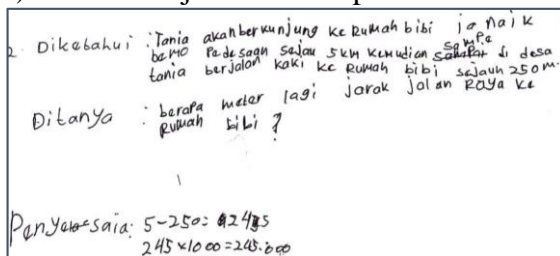 2. Diketahui : Tania akan berkunjung ke Rumah bibi ia naik
bemo Pedesaan sejau 5km kemudian sampe di desa
tania berjalan kaki ke Rumah bibi sejauh 250m.
Ditanya : berapa meter lagi jarak jalan Raya ke
Rumah bibi ?
Penyelesaia: 5-250= 245
245 x 1000 = 245.000